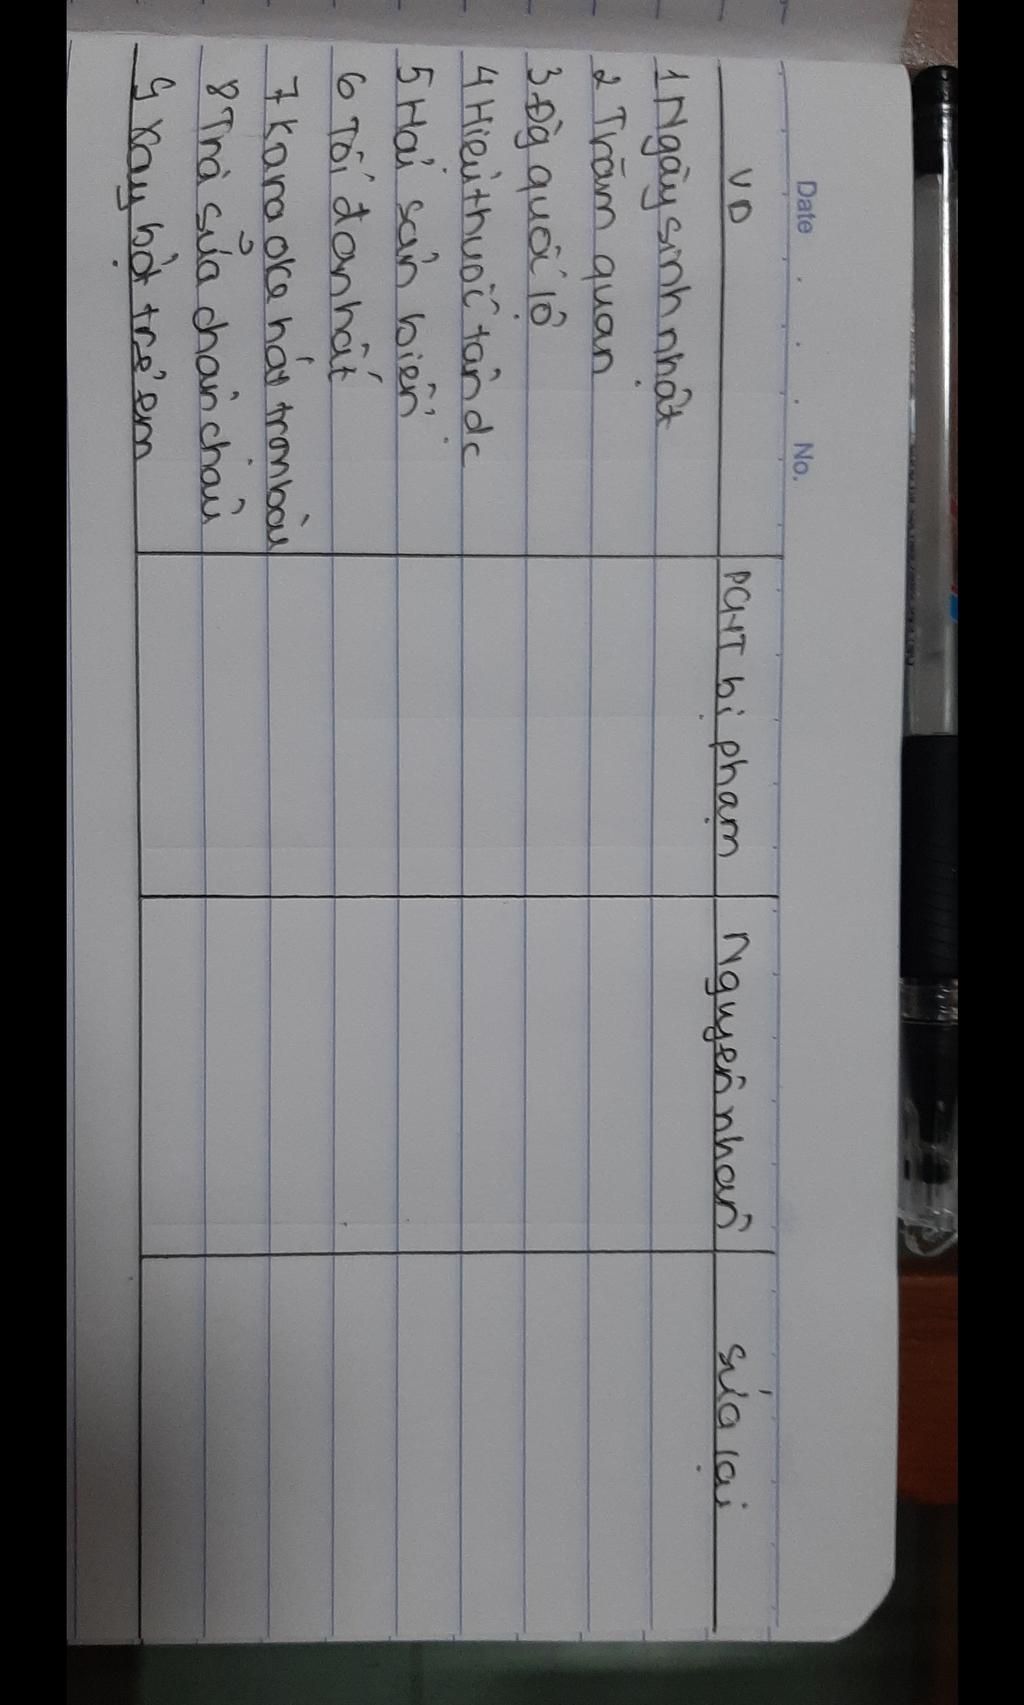 Date . . . No.
VD PCHT bị phạm Nguyên nhân sửa lại
1 Ngày sinh nhật
2 Trăm quan
3 Đg quốc lộ
4 Hiệu thuốc tân dc
5 Hải sản biển
6 Tối đa nhất
7 Karaoke hát trên bàu
8 Trà sữa chân châu
9 Xay bột trẻ em